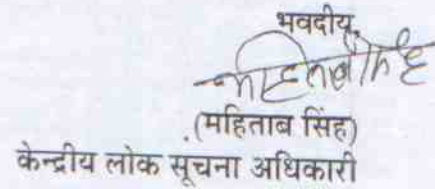 भवदीय,
महिताब सिंह
(महिताब सिंह)
केन्द्रीय लोक सूचना अधिकारी